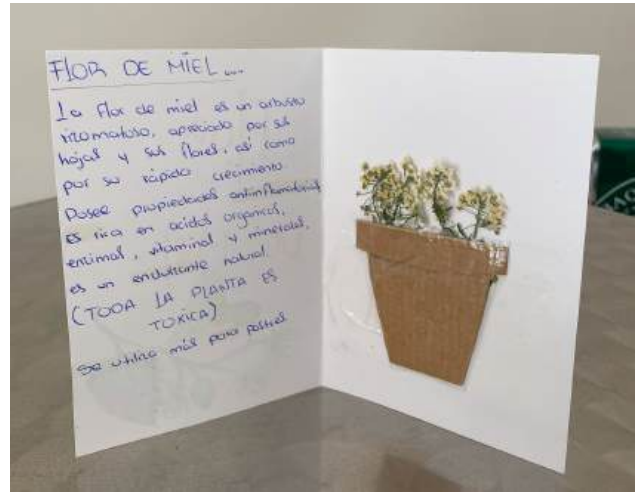 FLOR DE MIEL...
La Flor de miel es un arbusto
rizomatoso, apreciado por sus
hojas y sus flores, así como
por su rápido crecimiento.
Posee propiedades antiinflamatorias
es rica en acidos organicos,
enzimas, vitaminas y minerales,
es un endulzante natural.
(TODA LA PLANTA ES
TOXICA)
Se utiliza más para postres